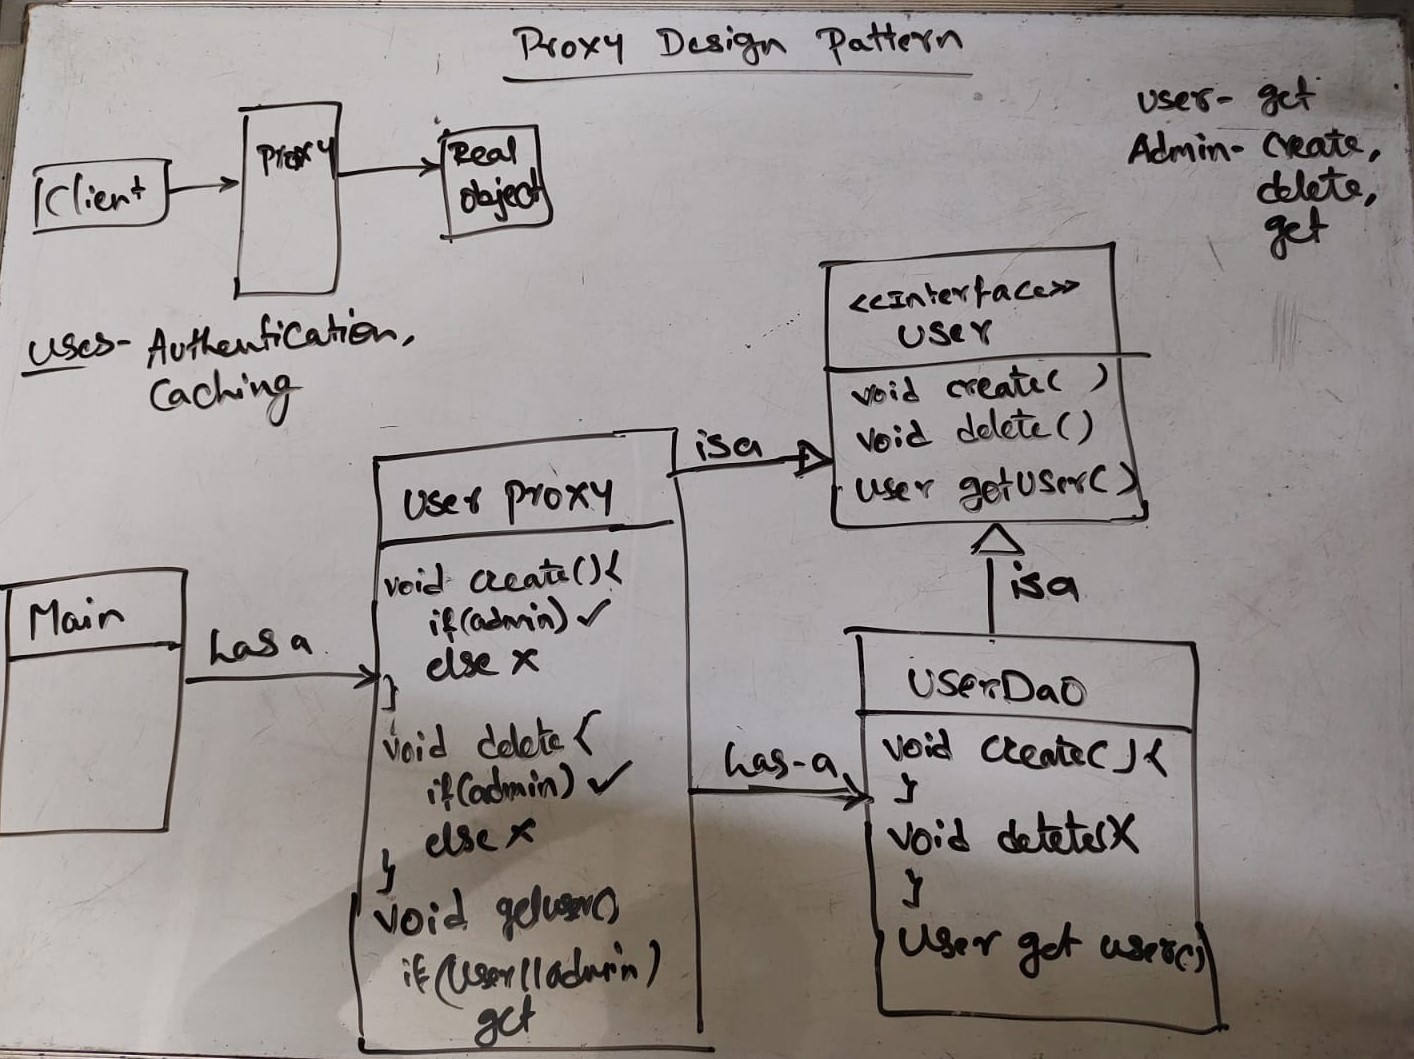 Proxy Design Pattern
user- get
Admin- create,
delete,
get
Client
Proxy
Real
object
uses- Authentication,
Caching
<<Interface>>
user
void create( )
void delete()
user getUser()
isa
isa
User Proxy
void create(){
if(admin) ✓
else x
}
void delete {
if(admin) ✓
else x
}
void getuser()
if(user||admin)
get
Main
has a
has-a
UserDao
void create(){
}
void delete(){
}
User get user()